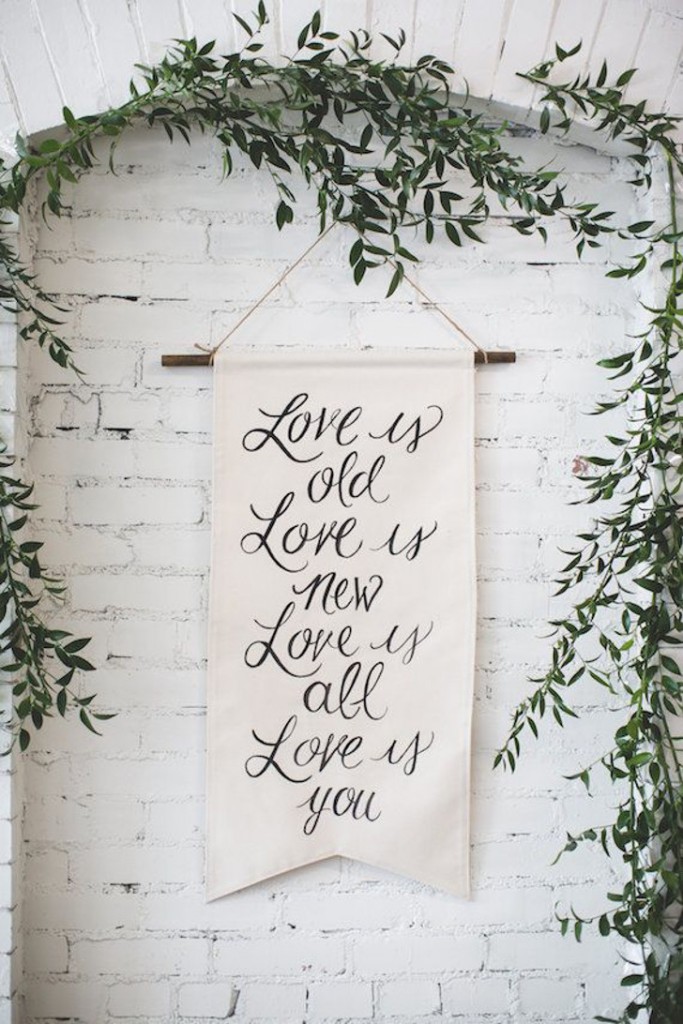 Love is
old
Love is
new
Love is
all
Love is
you